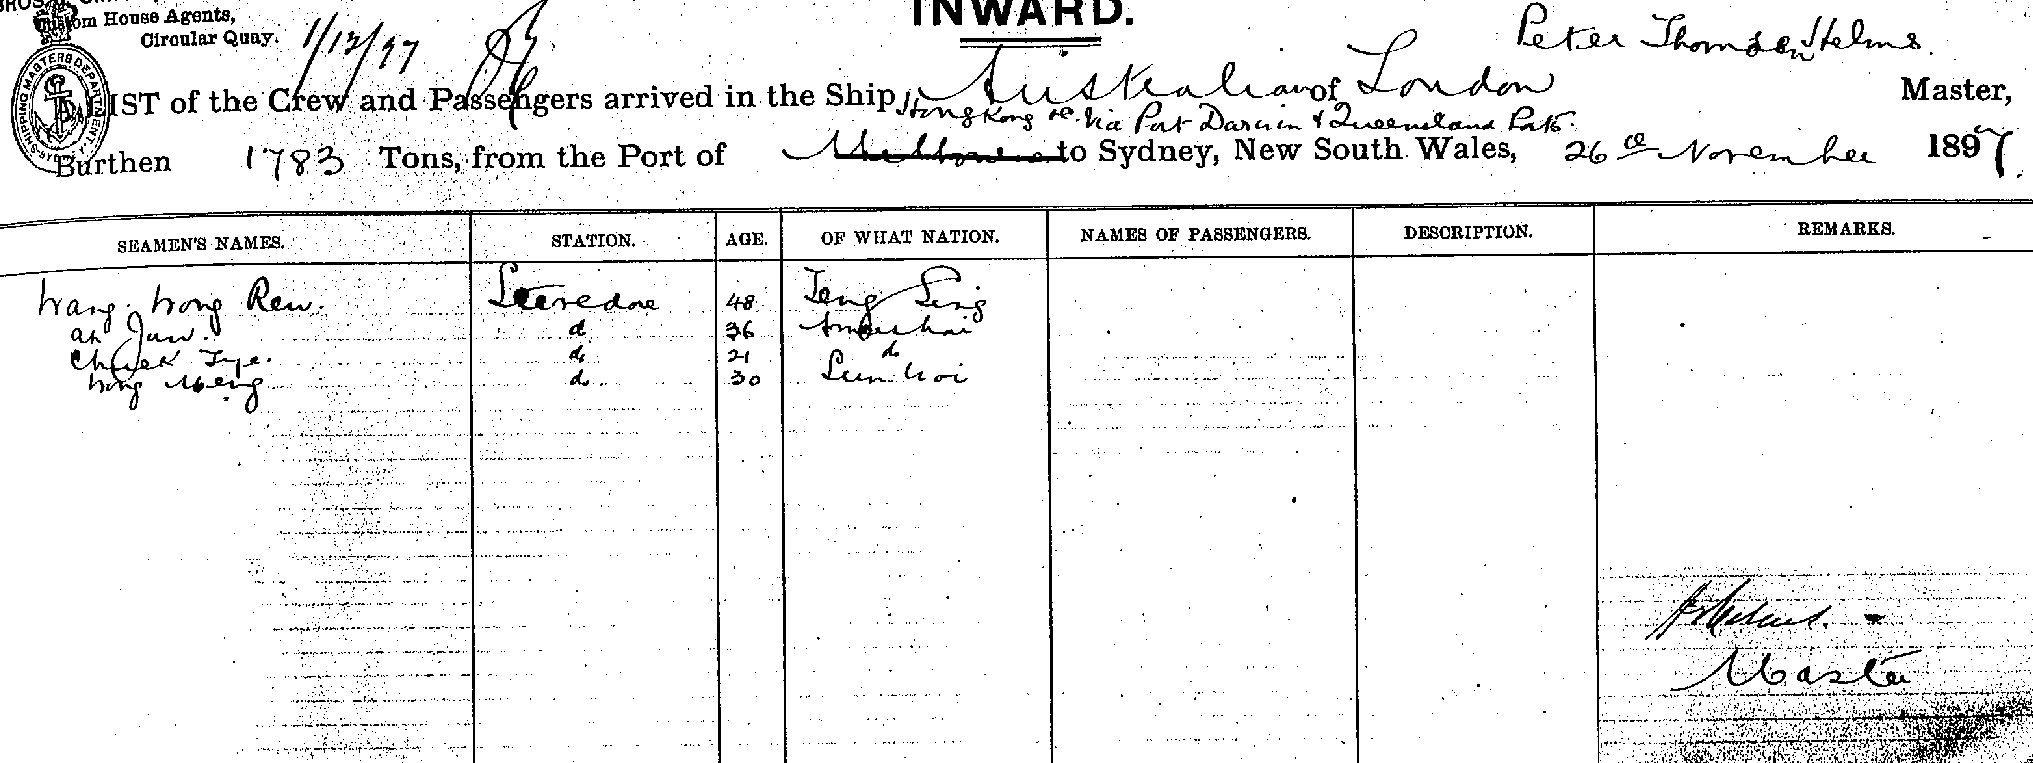 INWARD.
Custom House Agents,
Circular Quay. 1/12/97
Peter Thomsen Helms.
SHIPPING MASTERS DEPARTMENT
LIST of the Crew and Passengers arrived in the Ship Australian of London Master,
Hong Kong via Port Darwin & Queensland Ports.
Burthen 1783 Tons, from the Port of Melbourne to Sydney, New South Wales, 26th November 1897.
SEAMEN'S NAMES. STATION. AGE. OF WHAT NATION. NAMES OF PASSENGERS. DESCRIPTION. REMARKS.
Wang Wong Rew. Stevedore 48
Ah Jun. do 36
Chuck Tye. do 21 do
Wong Meng do 30 Sun Woi
Master